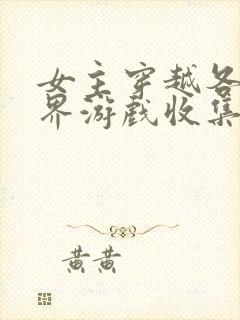 女主穿越各
界游戏收集
黄黄